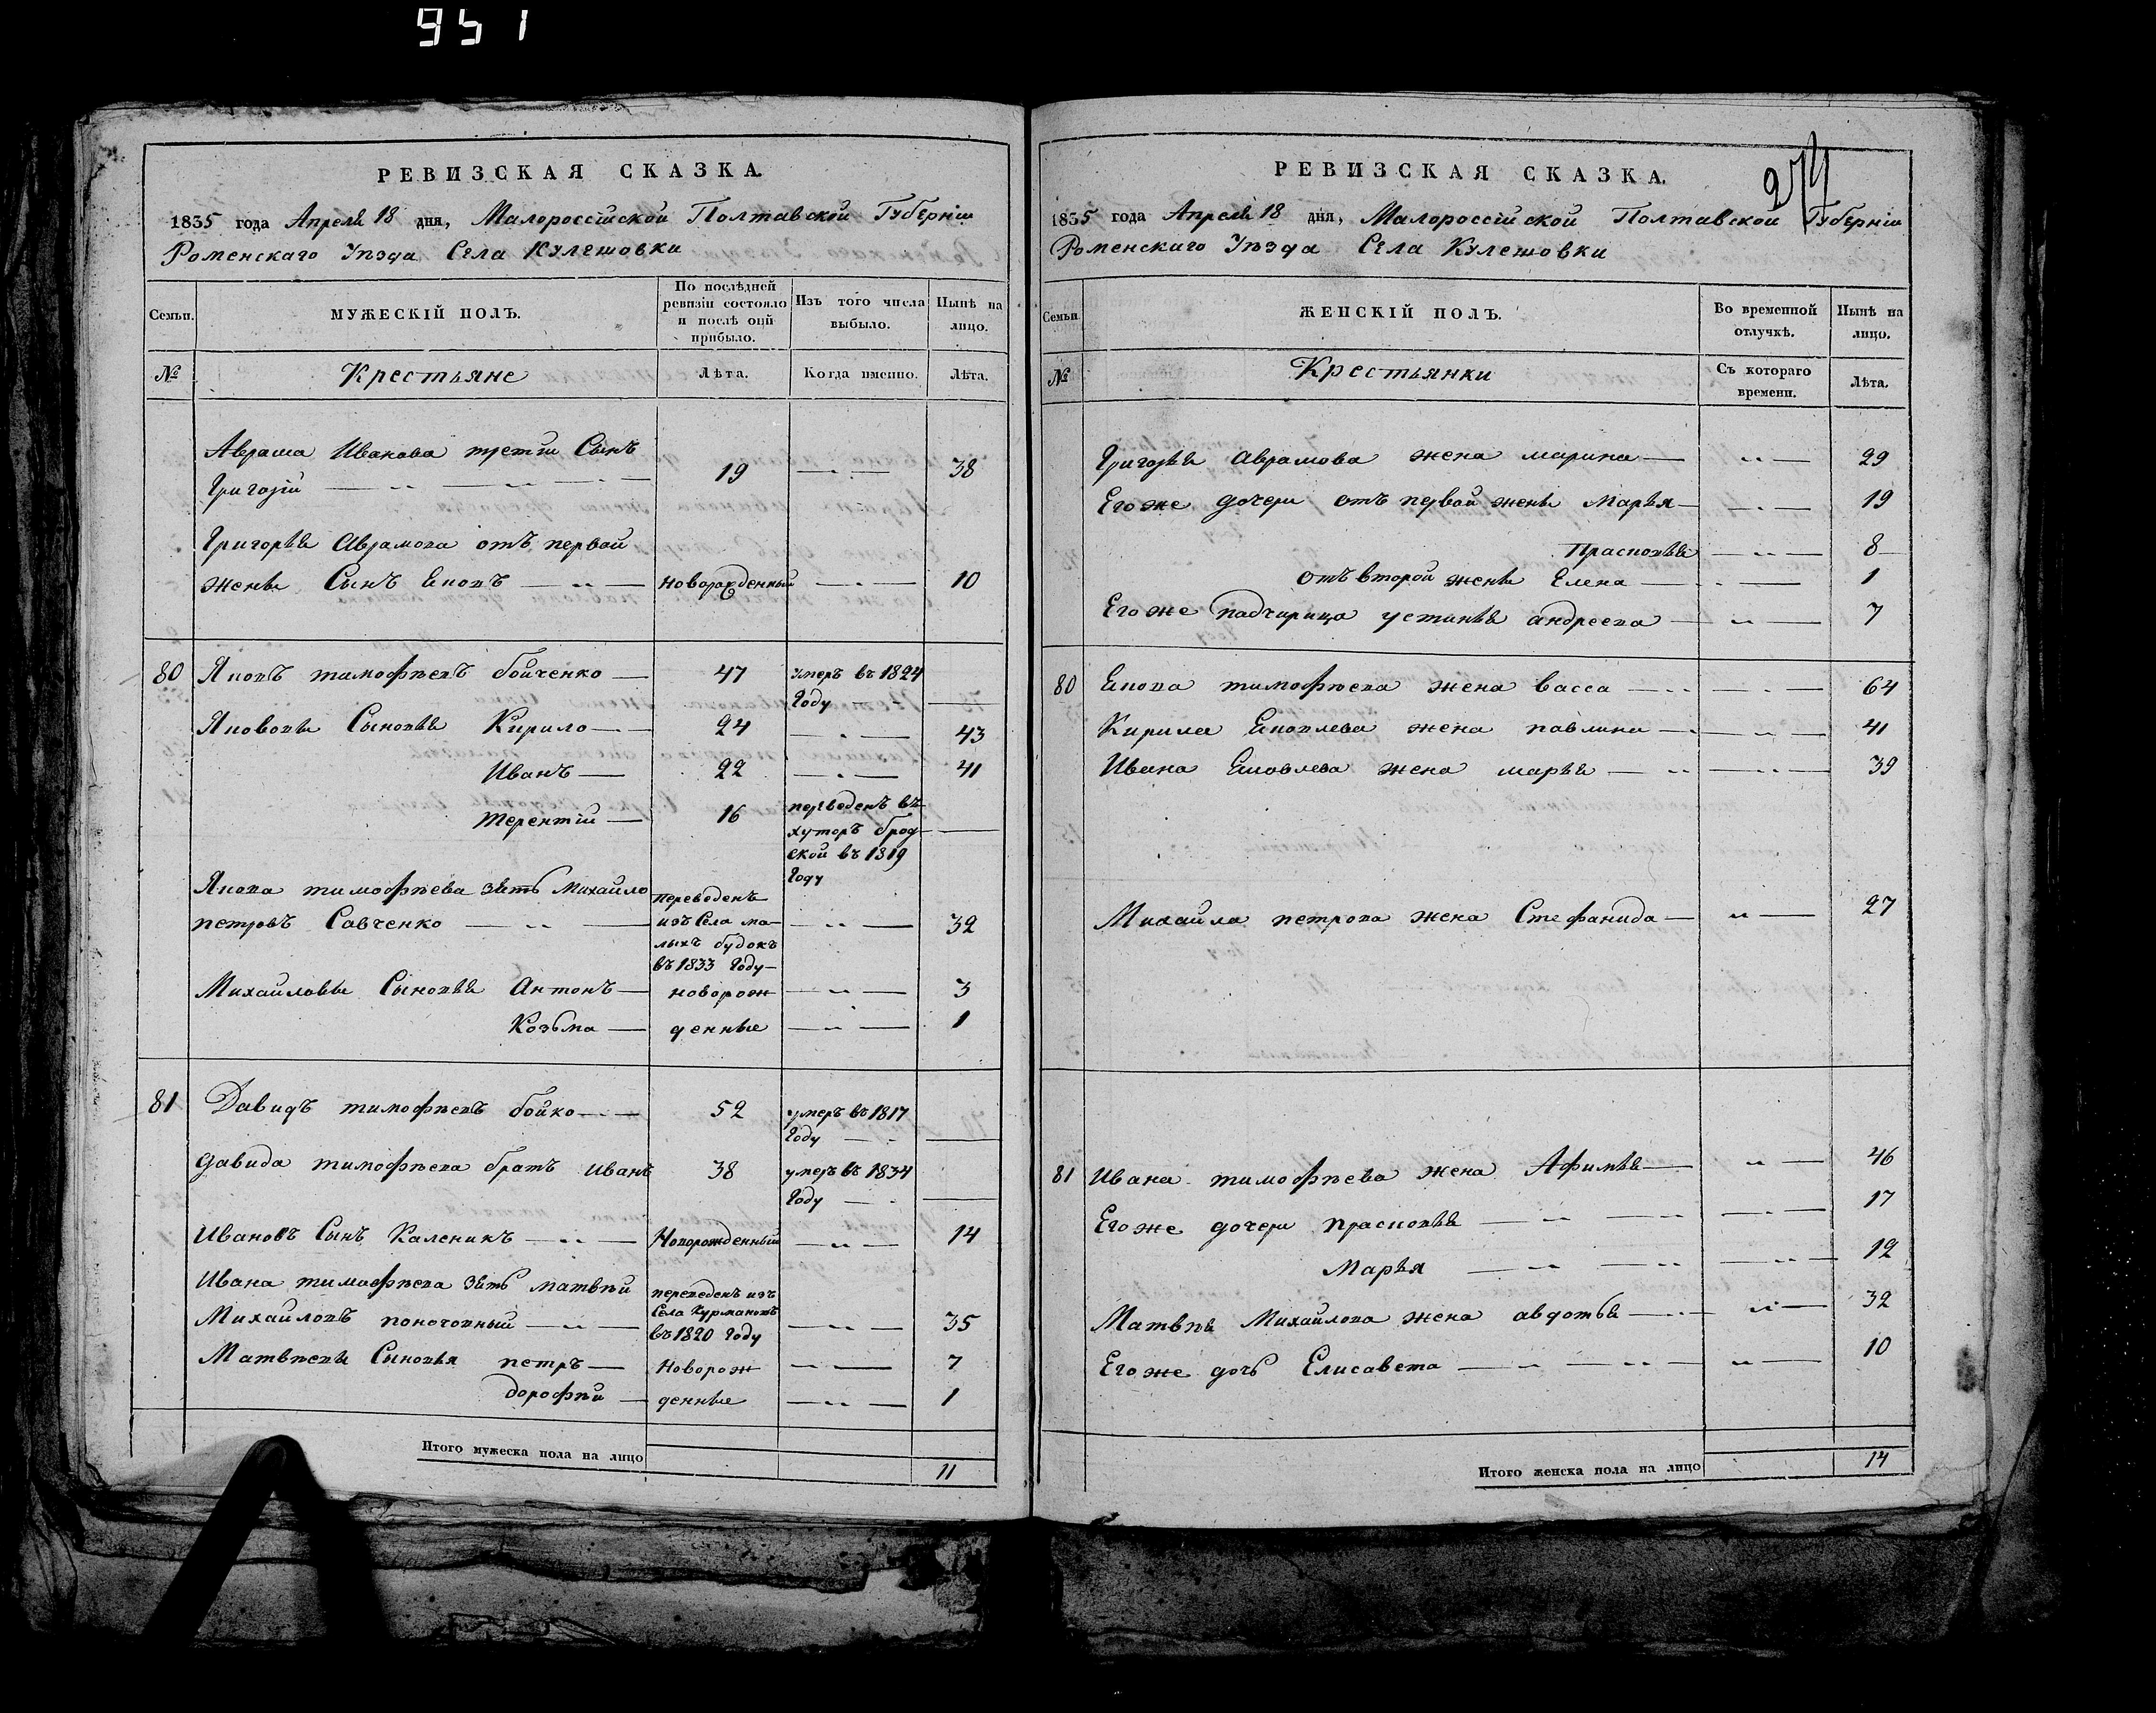 951
РЕВИЗСКАЯ СКАЗКА.
1835 года Апреля 18 дня, Малороссійской Полтавской Губерніи
Роменскаго Уѣзда Села Кулешовки
Семьи.
МУЖЕСКІЙ ПОЛЪ.
По послѣдней ревизіи состояло и послѣ оній прибыло.
Изъ того числа выбыло.
Нынѣ на лицо.
№
Крестьяне
Лѣта.
Когда именно.
Лѣта.
Аврама Иванова третіи Сынъ
Григорій 19 38
Григорья Аврамова отъ первой
жены Сынъ Яковъ новорожденный 10
80 Яковъ тимофѣевъ бойченко 47 умеръ въ 1824
Году
Якововы Сыновья Кирило 24 43
Иванъ 22 41
терентій 16 переведенъ въ
хуторъ брод
ской въ 1819
Году
Якова тимофѣева зять Михайло переведенъ
петровъ Савченко изъ Села ма- 32
лыхъ будокъ
въ 1833 Году
Михайловы Сыновья Антонъ новорож 3
Козьма денные 1
81 Давидъ тимофѣевъ бойко 52 умеръ въ 1817
Году
давида тимофѣева братъ иванъ 38 умеръ въ 1834
Году
Ивановъ Сынъ Каленикъ Новорожденный 14
Ивана тимофѣева зять матвѣй переведенъ изъ
Села Курмановъ
Михайловъ поночовный въ 1820 Году 35
Матвѣевы Сыновья петръ Новорож 7
дорофѣй денные 1
Итого мужеска пола на лицо 11
274
РЕВИЗСКАЯ СКАЗКА.
1835 года Апреля 18 дня, Малороссійской Полтавской Губерніи
Роменскаго Уѣзда Села Кулешовки
Семьи.
ЖЕНСКІЙ ПОЛЪ.
Во временной отлучкѣ.
Нынѣ на лицо.
№
Крестьянки
Съ котораго времени.
Лѣта.
Григорья аврамова жена марина 29
Его же дочери отъ первой жены Марья 19
Прасковья 8
отъ второй жены Елена 1
Его же падчирица устинья андреева 7
80 Якова тимофѣева жена васса 64
Кирила Яковлева жена павлина 41
Ивана Яковлева жена марья 39
Михайла петрова жена Стефанида 27
81 Ивана тимофѣева жена Афимья 46
Его же дочери прасковья 17
Марья 12
Матвѣя Михайлова жена авдотья 32
Его же дочь Елисавета 10
Итого женска пола на лицо 14